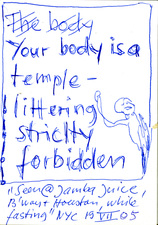 The body
Your body is a
temple –
littering
strictly
forbidden
"Seen @ Jamba Juice,
B'way + Houston, while
fasting" NYC 19 VII 05